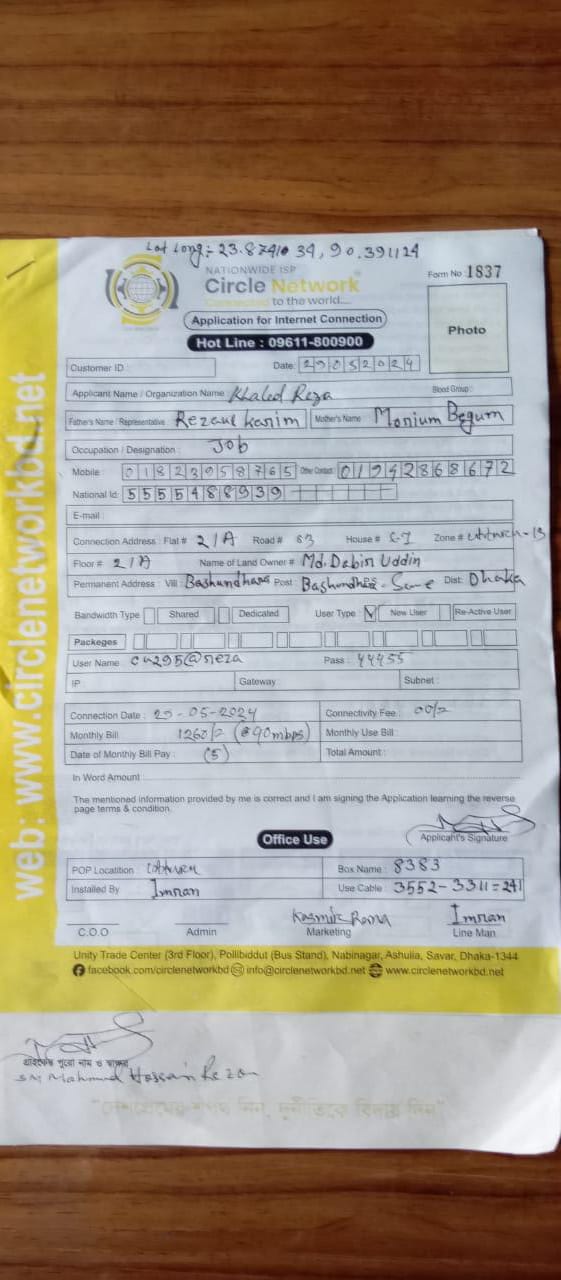 Lat Long:- 23.874134, 90.391124
NATIONWIDE ISP
Circle Network
Connected to the world....
Form No 1837
Application for Internet Connection
Hot Line : 09611-800900
Photo
Customer ID :
Date: 29052024
Applicant Name / Organization Name Khaled Reza Blood Group :
Father's Name / Representative : Rezaul karim Mother's Name Monium Begum
Occupation / Designation : Job
Mobile : 01823958765 Other Contact : 01942868672
National Id: 5555488939
E-mail :
Connection Address : Flat # 2/A Road # 63 House # Zone #
Floor # 2/A Name of Land Owner # Md. Dabin Uddin
Permanent Address : Vill : Bashundhara Post : Bashundhara - Same Dist: Dhaka
Bandwidth Type Shared Dedicated User Type : New User Re-Active User
Packeges
User Name : Pass : 44455
IP : Gateway : Subnet :
Connection Date : 29-05-2024 Connectivity Fee : 00/=
Monthly Bill 1260/= Monthly Use Bill :
Date of Monthly Bill Pay : (5) Total Amount :
In Word Amount :
The mentioned information provided by me is correct and I am signing the Application learning the reverse
page terms & condition.
Office Use
Applicant's Signature
POP Locatition Box Name : 8383
Installed By Imran Use Cable : 3552-3311=241
Rana Imran
C.O.O Admin Marketing Line Man
Unity Trade Center (3rd Floor), Pollibiddut (Bus Stand), Nabinagar, Ashulia, Savar, Dhaka-1344
facebook.com/circlenetworkbd info@circlenetworkbd.net www.circlenetworkbd.net
web: www.circlenetworkbd.net
গ্রাহকের পুরো নাম ও স্বাক্ষর
SM Mahmud Hossain Rezon
"দেশপ্রেমের শপথ নিন, দুর্নীতিকে বিদায় দিন"